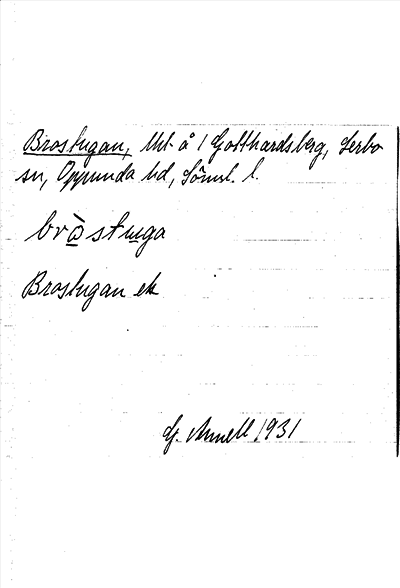 Brostugan, Uht å 1 Gotthardsberg, Lerbo
sn, Oppunda hd, Söml. l.
bròstuga
Brostugan ek
G. Annell 1931